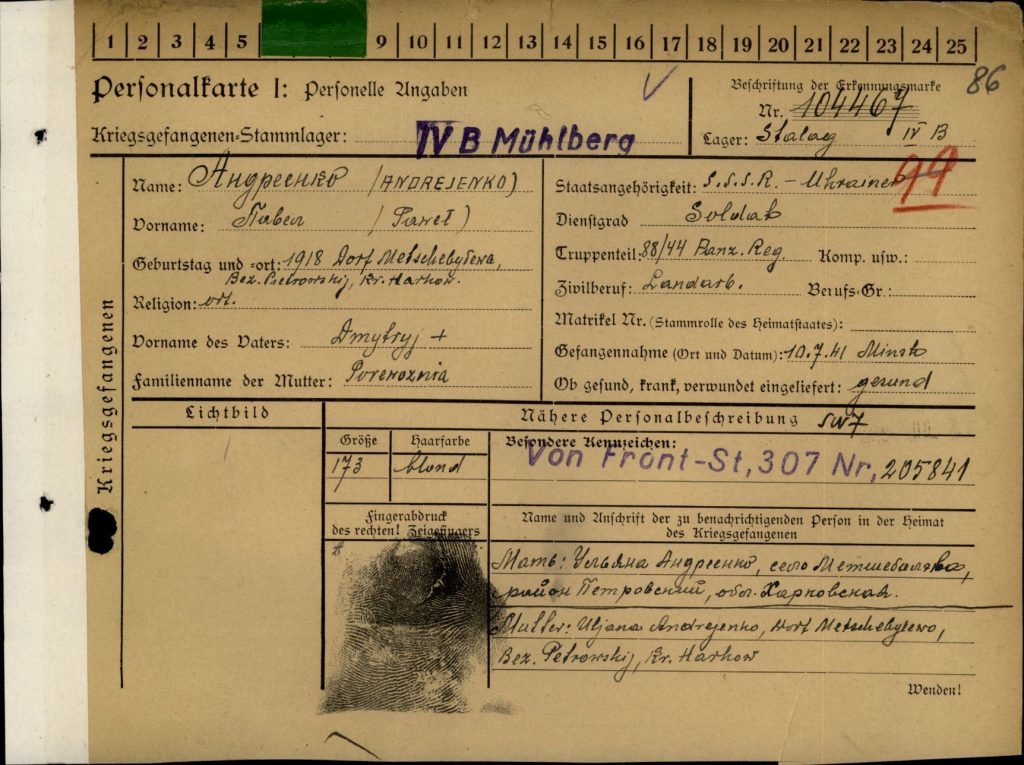 1 2 3 4 5 9 10 11 12 13 14 15 16 17 18 19 20 21 22 23 24 25
86
Personalkarte I: Personelle Angaben
Beschriftung der Erkennungsmarke
Nr. 104467
Kriegsgefangenen-Stammlager: IV B Mühlberg
Lager: Stalag IV B
99
Kriegsgefangenen
Name: Андреенко (ANDREJENKO)
Vorname: Павел (Paweł)
Geburtstag und =ort: 1918 Dorf Metschebyłewa,
Bez. Pietrowskij, Kr. Harkow.
Religion: ort.
Vorname des Vaters: Dmytryj +
Familienname der Mutter: Porewoznia
Staatsangehörigkeit: S.S.S.R. – Ukrainer
Dienstgrad Soldat
Truppenteil: 88/44 Panz. Reg. Komp. usw.:
Zivilberuf: Landarb. Berufs=Gr.:
Matrikel Nr. (Stammrolle des Heimatstaates):
Gefangennahme (Ort und Datum): 10.7.41 Minsk
Ob gesund, krank, verwundet eingeliefert: gesund
Lichtbild
Nähere Personalbeschreibung
Größe Haarfarbe Besondere Kennzeichen:
173 blond Von Front-St, 307 Nr, 205841
Fingerabdruck
des rechten! Zeigefingers
Name und Anschrift der zu benachrichtigenden Person in der Heimat
des Kriegsgefangenen
Мать: Ульяна Андреенко, село
район Петровский, обл. Харковская.
Mutter: Uljana Andrejenko, Dorf Metschebyłewo,
Bez. Petrowskij, Kr. Harkow
Wenden!